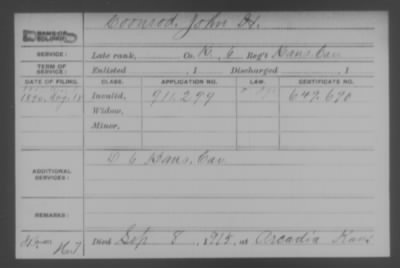 Coonrod, John H.
NAME OF SOLDIER:
SERVICE: Late rank, Co. K, 6 Reg't Kans. Cav
TERM OF SERVICE: Enlisted , 1 Discharged , 1
DATE OF FILING. CLASS. APPLICATION NO. LAW. CERTIFICATE NO.
1890, Aug. 18 Invalid, 911.299 649.690
Widow,
Minor,
ADDITIONAL SERVICES: D 6 Kans. Cav.
REMARKS:
Died Sep 8, 1915, at Arcadia Kans